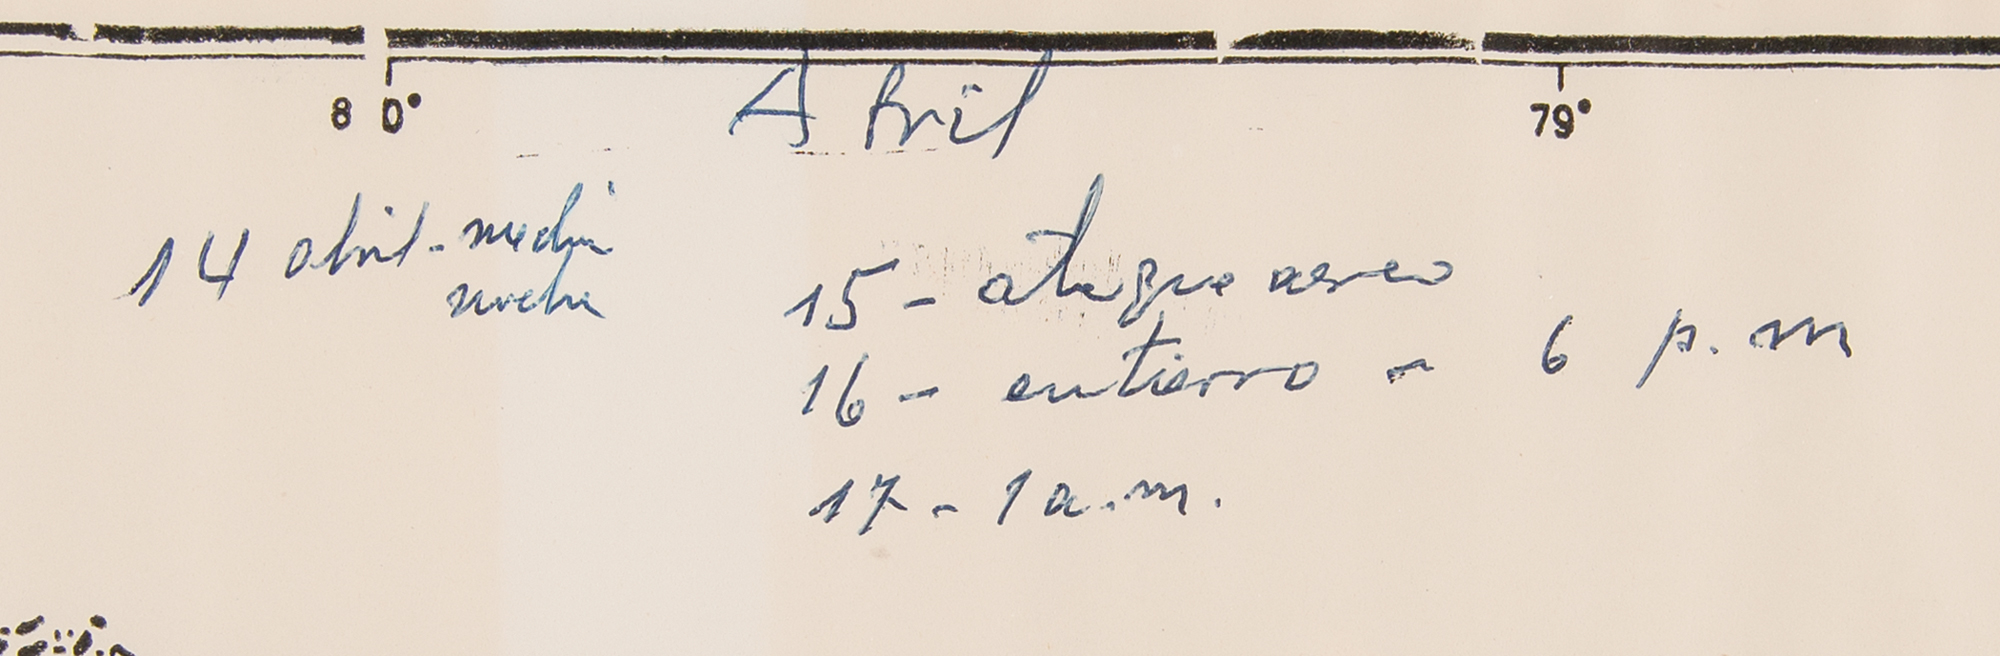 80° 79°
Abril
14 abril - media
noche
15 - ataque aereo
16 - entierro - 6 p.m
17 - 1 a.m.